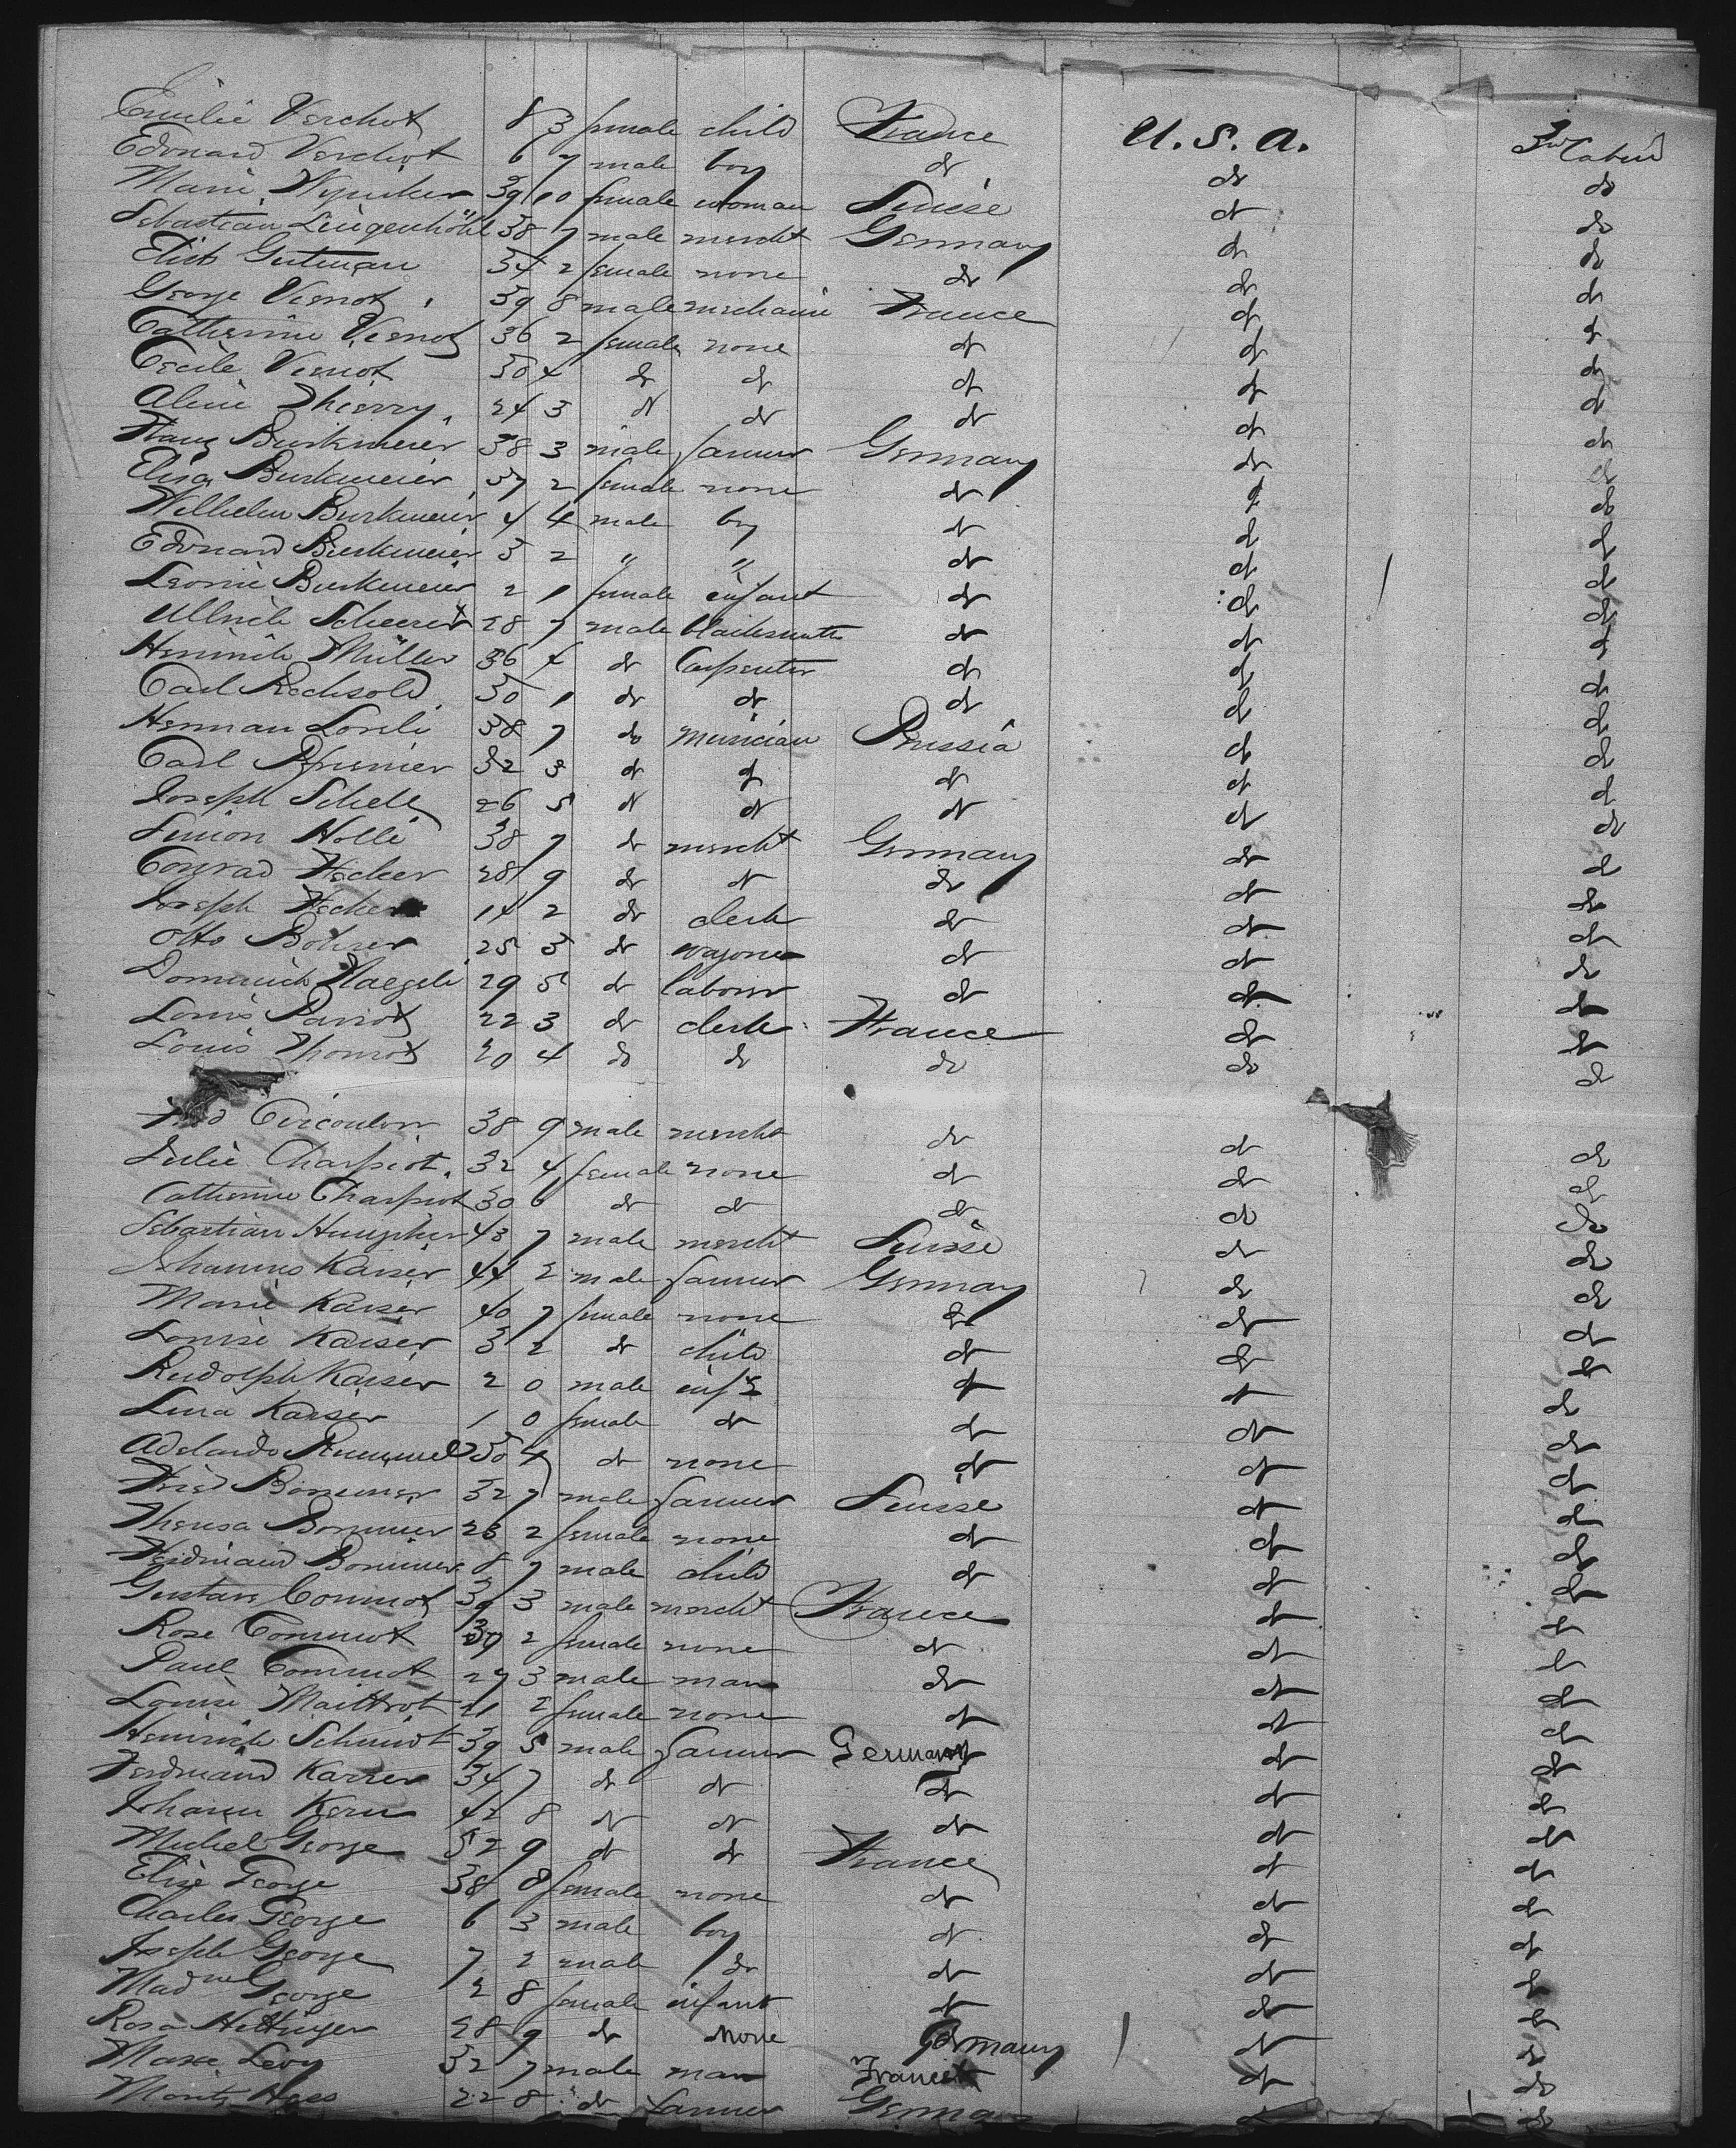 Emilie Verchot 8 3 female child France U.S.A. 3rd Cabin
Edouard Verchot 6 7 male boy do do do
Marie 39 10 female woman Suisse do do
Sebastian Lingenhöhl 38 7 male mercht Germany do do
Elisb Gutman 34 2 female none do do do
George Vienot 39 8 male mechanic France do do
Catherine Vienot 36 2 female none do do do
Cecile Vienot 30 4 do do do do do
Aline Thierry 24 3 do do do do do
Franz Burkmeier 38 3 male farmer Germany do do
Elisa Burkmeier 37 2 female none do do do
Wilhelm Burkmeier 4 4 male boy do do do
Edouard Burkmeier 3 2 " " do do do
Leonie Burkmeier 2 1 female infant do do do
Ullrich Scheerer 28 7 male blacksmith do do do
Heinrich Müller 36 4 do Carpenter do do do
Carl Rechsold 30 1 do do do do do
Herman Loreli 38 7 do musician Prussia do do
Carl 32 3 do do do do do
Joseph Schell 26 5 do do do do do
Simon Holli 38 7 do mercht Germany do do
Conrad Hecker 28 9 do do do do do
Joseph Hecker 14 2 do clerk do do do
Otto Bohrer 25 3 do wagoner do do do
Dominick Naegeli 29 5 do laborer do do do
Louis Parrot 22 3 do clerk France do do
Louis Thomot 20 4 do do do do do
Fred Circoulon 38 9 male mercht do do do
Julie Charpiot 32 4 female none do do do
Catherine Charpiot 30 6 do do do do do
Sebastian 43 7 male mercht Suisse do do
Johannes Kaiser 44 2 male farmer Germany do do
Marie Kaiser 40 7 female none do do do
Louise Kaiser 3 2 do child do do do
Rudolph Kaiser 2 0 male inft do do do
Lina Kaiser 1 0 female do do do do
Adelaide Rummel 50 4 do none do do do
Fried Bommer 32 7 male farmer Suisse do do
Theresa Bommer 28 2 female none do do do
Ferdinand Bommer 8 7 male child do do do
Gustave Commot 39 3 male mercht France do do
Rose Commot 39 2 female none do do do
Paul Commot 27 3 male man do do do
Louise Maittrot 21 2 female none do do do
Heinrich Schmidt 39 5 male farmer Germany do do
Ferdinand Karrer 34 7 do do do do do
Johann Kern 42 8 do do do do do
Michel George 52 9 do do France do do
Elise George 38 8 female none do do do
Charles George 6 3 male boy do do do
Joseph George 7 2 male do do do do
Madne George 2 8 female infant do do do
Rosa Hettinger 28 9 do none Germany do do
Maxe Levy 32 7 male man France do do
Moritz Hess 22 8 do farmer Germany do do